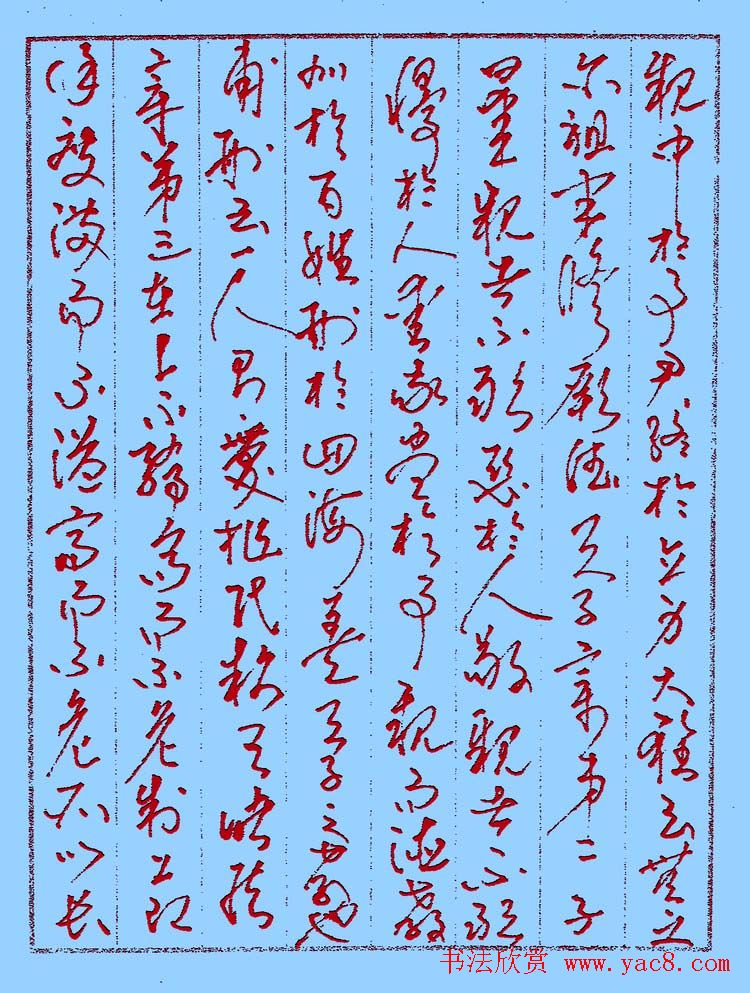 親中於事君終於立身大雅云無念
爾祖聿脩厥德天子章第二子
曰愛親者不敢惡於人敬親者不敢
慢於人愛敬盡於事親而德教
加於百姓刑於四海蓋天子之孝也
甫刑云一人有慶兆民賴之諸侯
章第三在上不驕高而不危制節
謹度滿而不溢高而不危所以長
书法欣赏 www.yac8.com